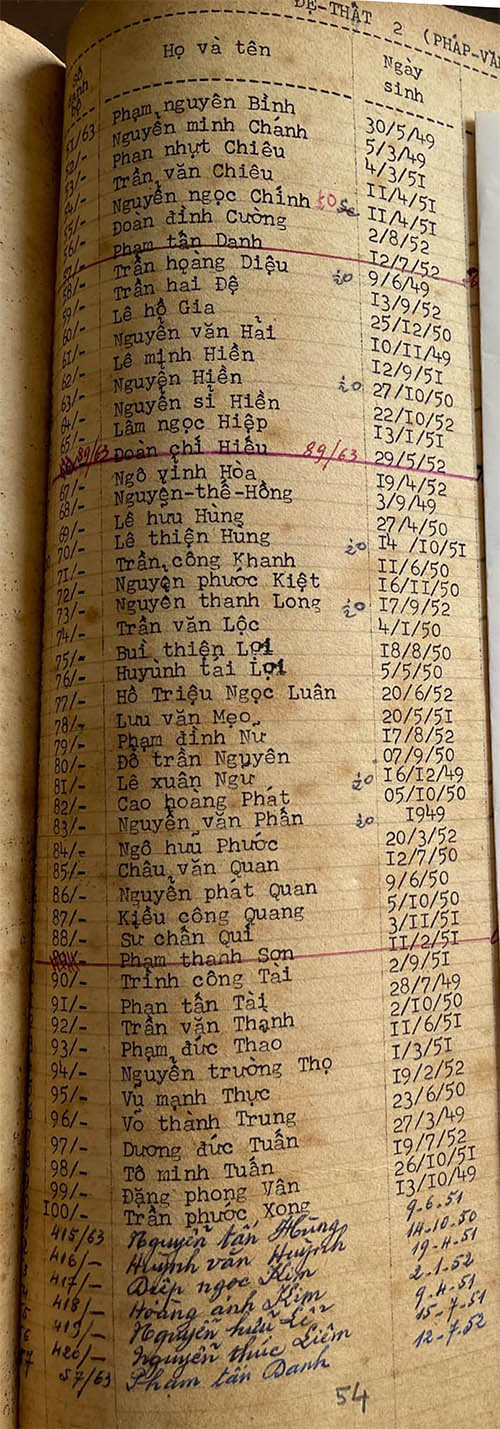 ĐỆ-THẤT 2 (PHÁP-VĂ
Số danh bộ Họ và tên Ngày sinh
51/63 Phạm nguyên Bỉnh 30/5/49
52/- Nguyễn minh Chánh 5/3/49
53/- Phan nhựt Chiêu 4/3/51
54/- Trần văn Chiêu 11/4/51
55/- Nguyễn ngọc Chính 11/4/51
56/- Đoàn đình Cường 2/8/52
57/- Phạm tấn Danh 12/7/52
58/- Trần hoàng Diệu 9/6/49
59/- Trần hai Đệ 13/9/52
60/- Lê hồ Gia 25/12/50
61/- Nguyễn văn Hải 10/11/49
62/- Lê minh Hiền 12/9/51
63/- Nguyện Hiền 27/10/50
64/- Nguyễn sĩ Hiền 22/10/52
65/- Lâm ngọc Hiệp 13/1/51
89/63 Đoàn chí Hiếu 89/63 29/5/52
67/- Ngô vĩnh Hòa 19/4/52
68/- Nguyện-thế-Hồng 3/9/49
69/- Lê hữu Hùng 27/4/50
70/- Lê thiện Hùng 14 /10/51
71/- Trần công Khanh 11/6/50
72/- Nguyện phước Kiệt 16/11/50
73/- Nguyên thanh Long 17/9/52
74/- Trần văn Lộc 4/1/50
75/- Bùi thiện Lợi 18/8/50
76/- Huyùnh tài Lợi 5/5/50
77/- Hồ Triệu Ngọc Luân 20/6/52
78/- Lưu văn Mẹo 20/5/51
79/- Phạm đình Nữ 17/8/52
80/- Đỗ trần Nguyên 07/9/50
81/- Lê xuân Ngự 16/12/49
82/- Cao hoàng Phát 05/10/50
83/- Nguyễn văn Phấn 1949
84/- Ngô hữu Phước 20/3/52
85/- Châu văn Quan 12/7/50
86/- Nguyễn phát Quan 9/6/50
87/- Kiều công Quang 5/10/50
88/- Sư chấn Quí 3/11/51
Phạm thanh Sơn 11/2/51
90/- Trịnh công Tài 2/9/51
91/- Phan tấn Tài 28/7/49
92/- Trần văn Thạnh 2/10/50
93/- Phạm đức Thao 11/6/51
94/- Nguyễn trường Thọ 1/3/51
95/- Vũ mạnh Thực 19/2/52
96/- Võ thành Trung 23/6/50
97/- Dương đức Tuấn 27/3/49
98/- Tô minh Tuấn 19/7/52
99/- Đặng phong Vân 26/10/51
100/- Trần phước Xong 13/10/49
415/63 Nguyễn tấn Hùng 9.6.51
416/- Huỳnh văn Huỳnh 14.10.50
417/- Diệp ngọc Kim 19.4.51
418/- Hoàng ánh Kim 2.1.52
419/- Nguyễn hữu Lễ 9.4.51
420/- Nguyễn thúc Liêm 15-7.51
57/63 Phạm tấn Danh 12-7.52
54